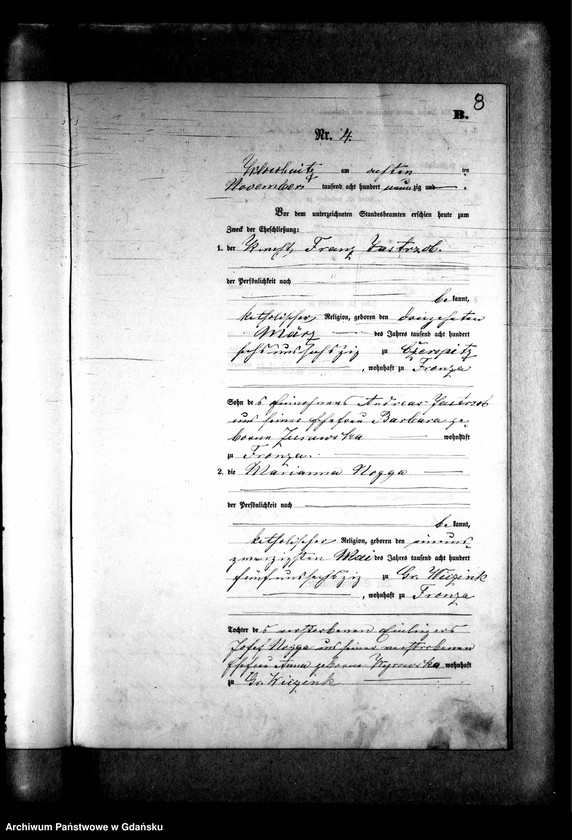 8
B.
Nr. 4.
am elften ten
November tausend acht hundert neunzig und .
Vor dem unterzeichneten Standesbeamten erschien heute zum
Zweck der Eheschließung:
1. der Knecht Franz Jastrzob.
der Persönlichkeit nach
be kannt,
katholischer Religion, geboren den
März des Jahres tausend acht hundert
sechsundsechszig zu Czerpitz
, wohnhaft zu Fronza
Sohn des Einwohners Andreas Jastrzob
und seiner Ehefrau Barbara ge-
borene Zurawska wohnhaft
zu Fronza.
2. die Marianna Nogga
der Persönlichkeit nach
be kannt,
katholischer Religion, geboren den einund-
zwanzigsten Mai des Jahres tausend acht hundert
fünfundsechszig zu Gr. Wiezink
, wohnhaft zu Fronza
Tochter des verstorbenen Einliegers
Josef Nogga und seiner verstorbenen
Ehefrau Anna geborene wohnhaft
zu Gr. Wiezink
Archiwum Państwowe w Gdańsku